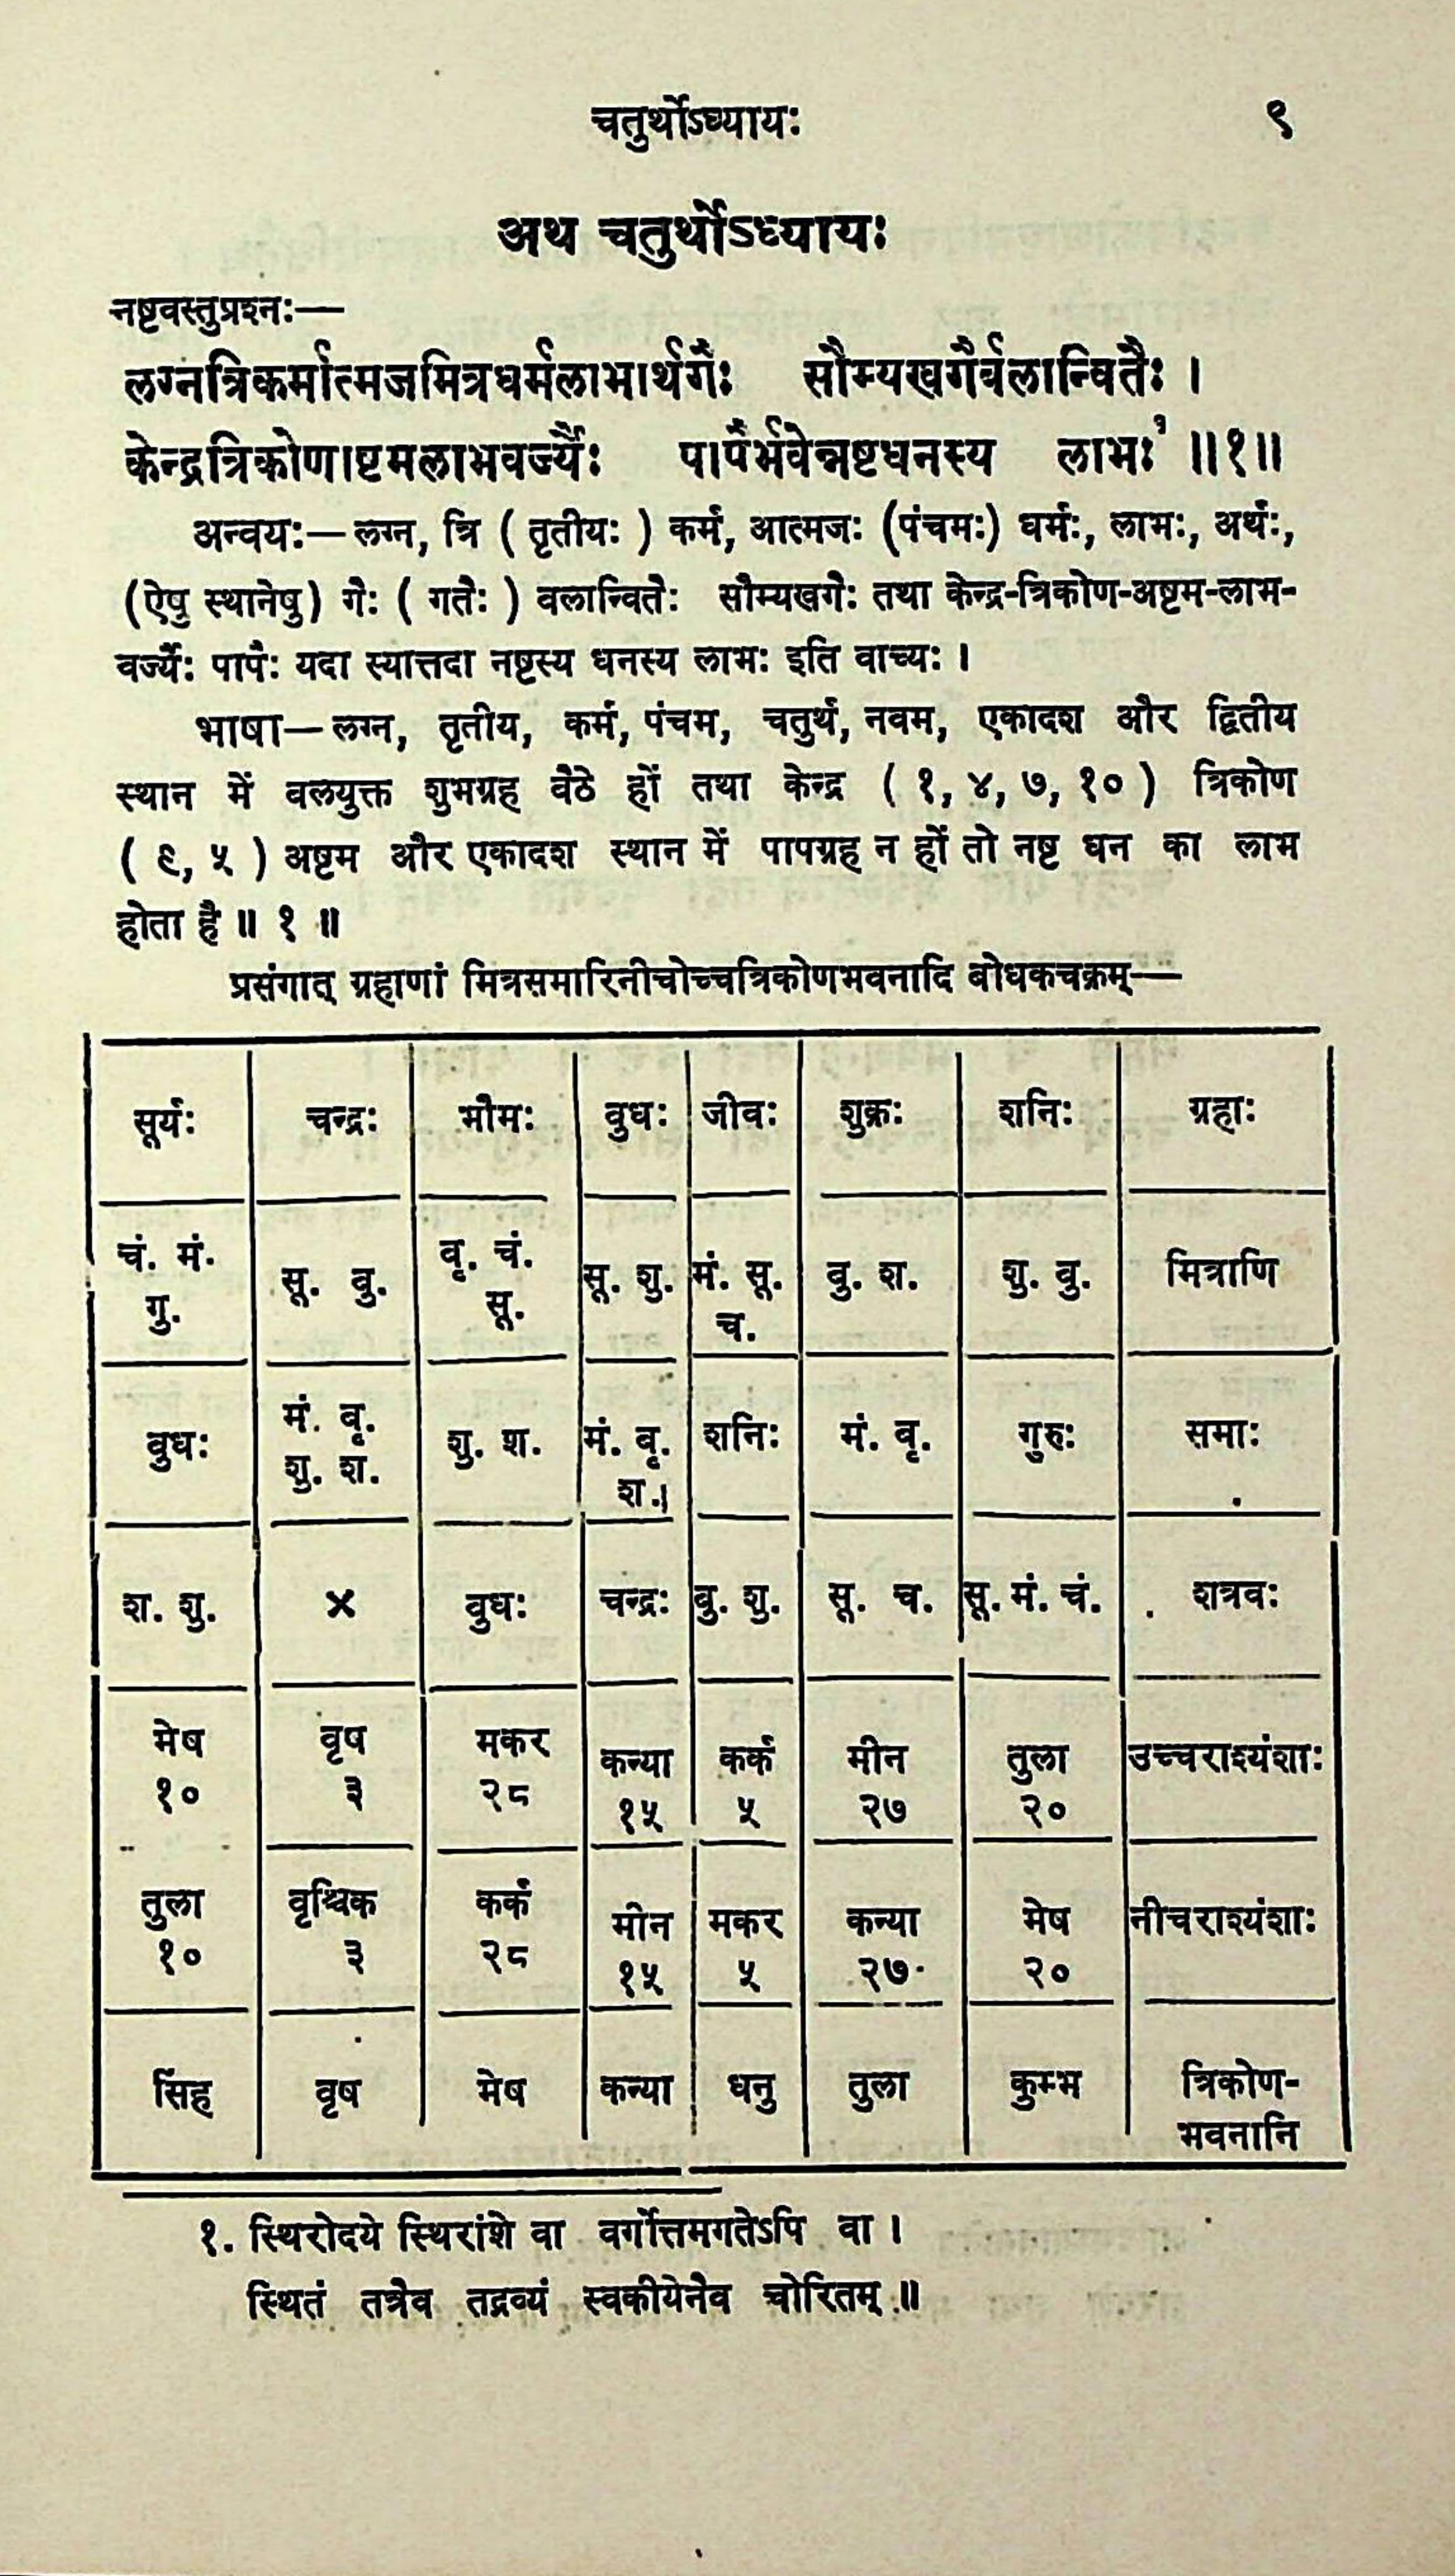 चतुर्थोऽध्यायः ९
अथ चतुर्थोऽध्यायः
नष्टवस्तुप्रश्नः—
लग्नत्रिकर्मात्मजमित्रधर्मलाभार्थगैः सौम्यखगैर्वलान्वितैः ।
केन्द्रत्रिकोणाष्टमलाभवर्ज्यैः पापैर्भवेन्नष्टधनस्य लाभः¹ ॥१॥
अन्वयः—लग्न, त्रि ( तृतीयः ) कर्म, आत्मजः (पंचमः) धर्मः, लाभः, अर्थः,
(ऐषु स्थानेषु) गैः ( गतैः ) वलान्वितैः सौम्यखगैः तथा केन्द्र-त्रिकोण-अष्टम-लाभ-
वर्ज्यैः पापैः यदा स्यात्तदा नष्टस्य धनस्य लाभः इति वाच्यः ।
भाषा—लग्न, तृतीय, कर्म, पंचम, चतुर्थ, नवम, एकादश और द्वितीय
स्थान में वलयुक्त शुभग्रह वैठे हों तथा केन्द्र ( १, ४, ७, १० ) त्रिकोण
( ९, ५ ) अष्टम और एकादश स्थान में पापग्रह न हों तो नष्ट धन का लाभ
होता है ॥ १ ॥
प्रसंगात् ग्रहाणां मित्रसमारिनीचोच्चत्रिकोणभवनादि बोधकचक्रम्—
सूर्यः चन्द्रः भौमः वुधः जीवः शुक्रः शनिः ग्रहाः
चं. मं. वृ. चं.
सू. वु. सू. शु. मं. सू. वु. श. शु. वु. मित्राणि
गु. सू. च.
मं. वृ.
वुधः शु. श. मं. वृ. शनिः मं. वृ. गुरुः समाः
शु. श. श.
श. शु. × वुधः चन्द्रः वु. शु. सू. च. सू. मं. चं. शत्रवः
मेष वृष मकर कन्या कर्क मीन तुला उच्चराश्यंशाः
१० ३ २८ १५ ५ २७ २०
तुला वृश्चिक कर्क मीन मकर कन्या मेष नीचराश्यंशाः
१० ३ २८ १५ ५ २७ २०
सिंह वृष मेष कन्या धनु तुला कुम्भ त्रिकोण-
भवनानि
१. स्थिरोदये स्थिरांशे वा वर्गोत्तमगतेऽपि वा ।
स्थितं तत्रैव तद्रव्यं स्वकीयेनैव चोरितम् ॥